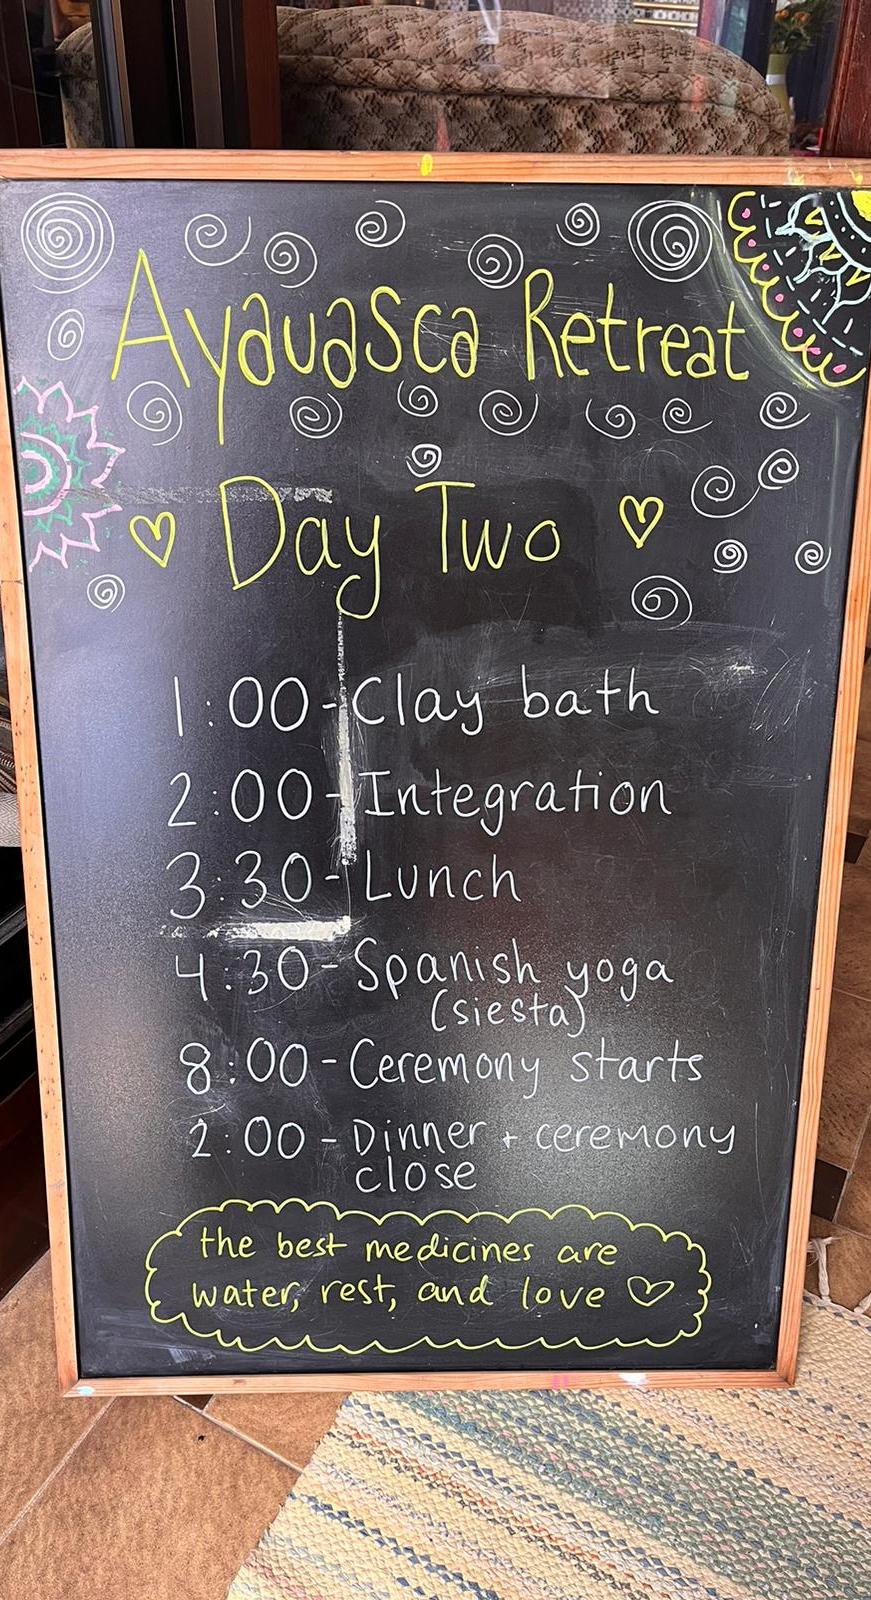 Ayauasca Retreat
Day Two
1:00-Clay bath
2:00-Integration
3:30-Lunch
4:30-Spanish yoga
(siesta)
8:00-Ceremony starts
2:00-Dinner + ceremony
close
the best medicines are
water, rest, and love